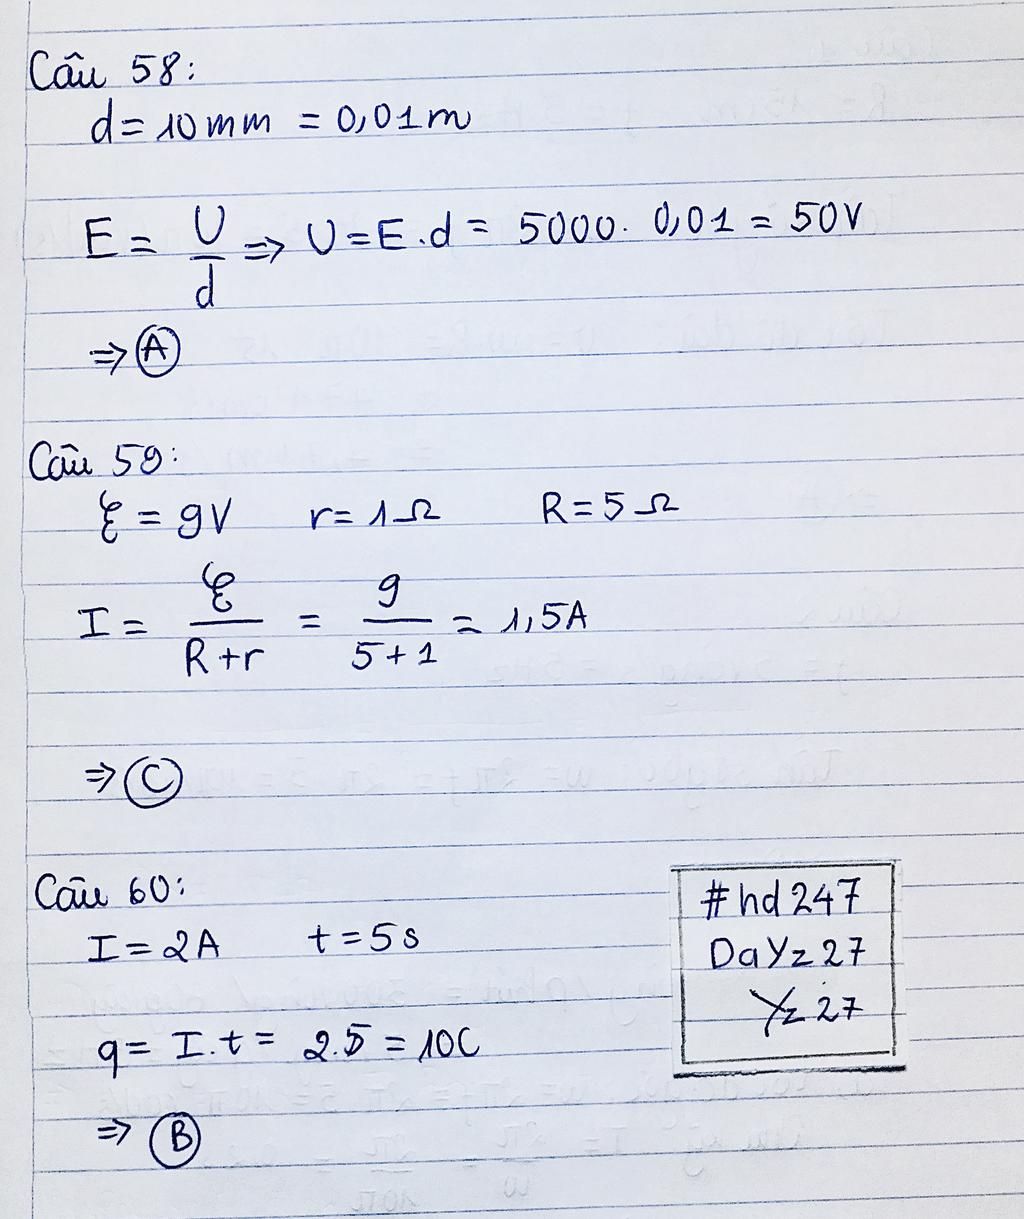 Câu 58:
d = 10mm = 0,01m
E = U/d => U = E.d = 5000. 0,01 = 50V
=> A
Câu 59:
ξ = 9V r = 1Ω R = 5Ω
I = ξ/(R+r) = 9/(5+1) = 1,5A
=> C
Câu 60:
I = 2A t = 5s
q = I.t = 2.5 = 10C
=> B
#hd247
DaYz27
Yz27